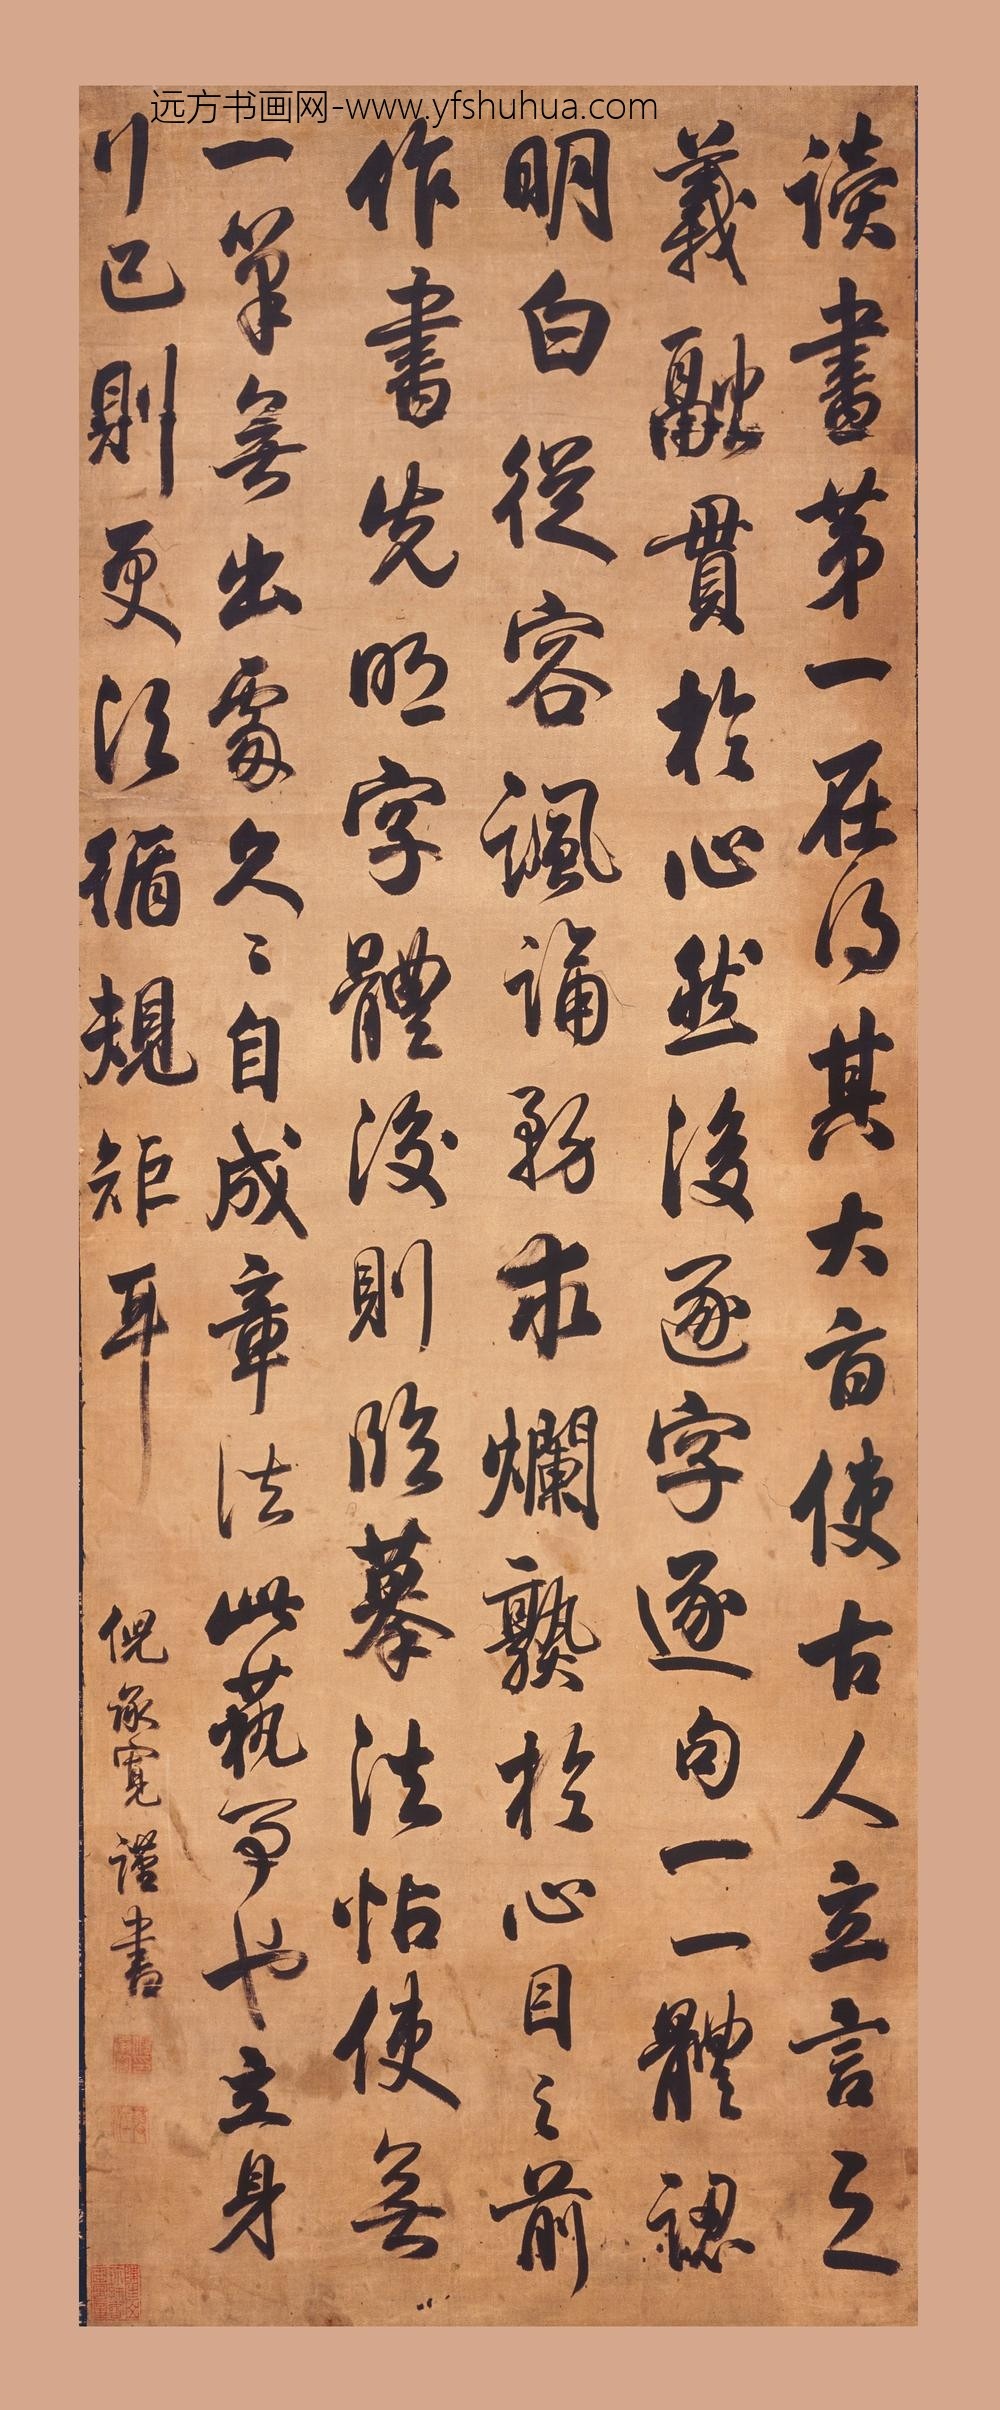 远方书画网-www.yfshuhua.com
讀書第一在得其大旨使古人立言之
義融貫於心然後逐字逐句一一體認
明白從容諷誦務求爛熟於心目之前
作書先明字體後則臨摹法帖使無
一筆無出處久久自成章法此藝事也立身
行己則更須循規矩耳
倪承寬謹書